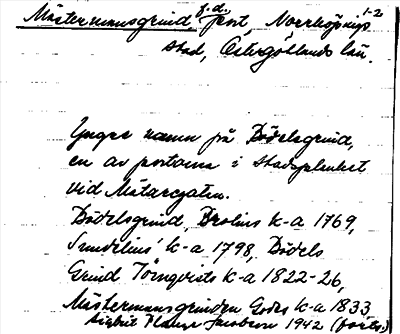 Mästermansgrind, f.d. port, Norrköpings 1-2
stad, Östergötlands län.
Yngre namn på Bödelsgrind,
en av portarna i stadsplanket
vid Mätaregatan.
Bödelsgrind, Brolins k-a 1769,
Sundelius' k-a 1798, Bödels
Grind Törnqvists k-a 1822-26,
Mästermansgrinden k-a 1833
Jacobson 1942 (forts.)